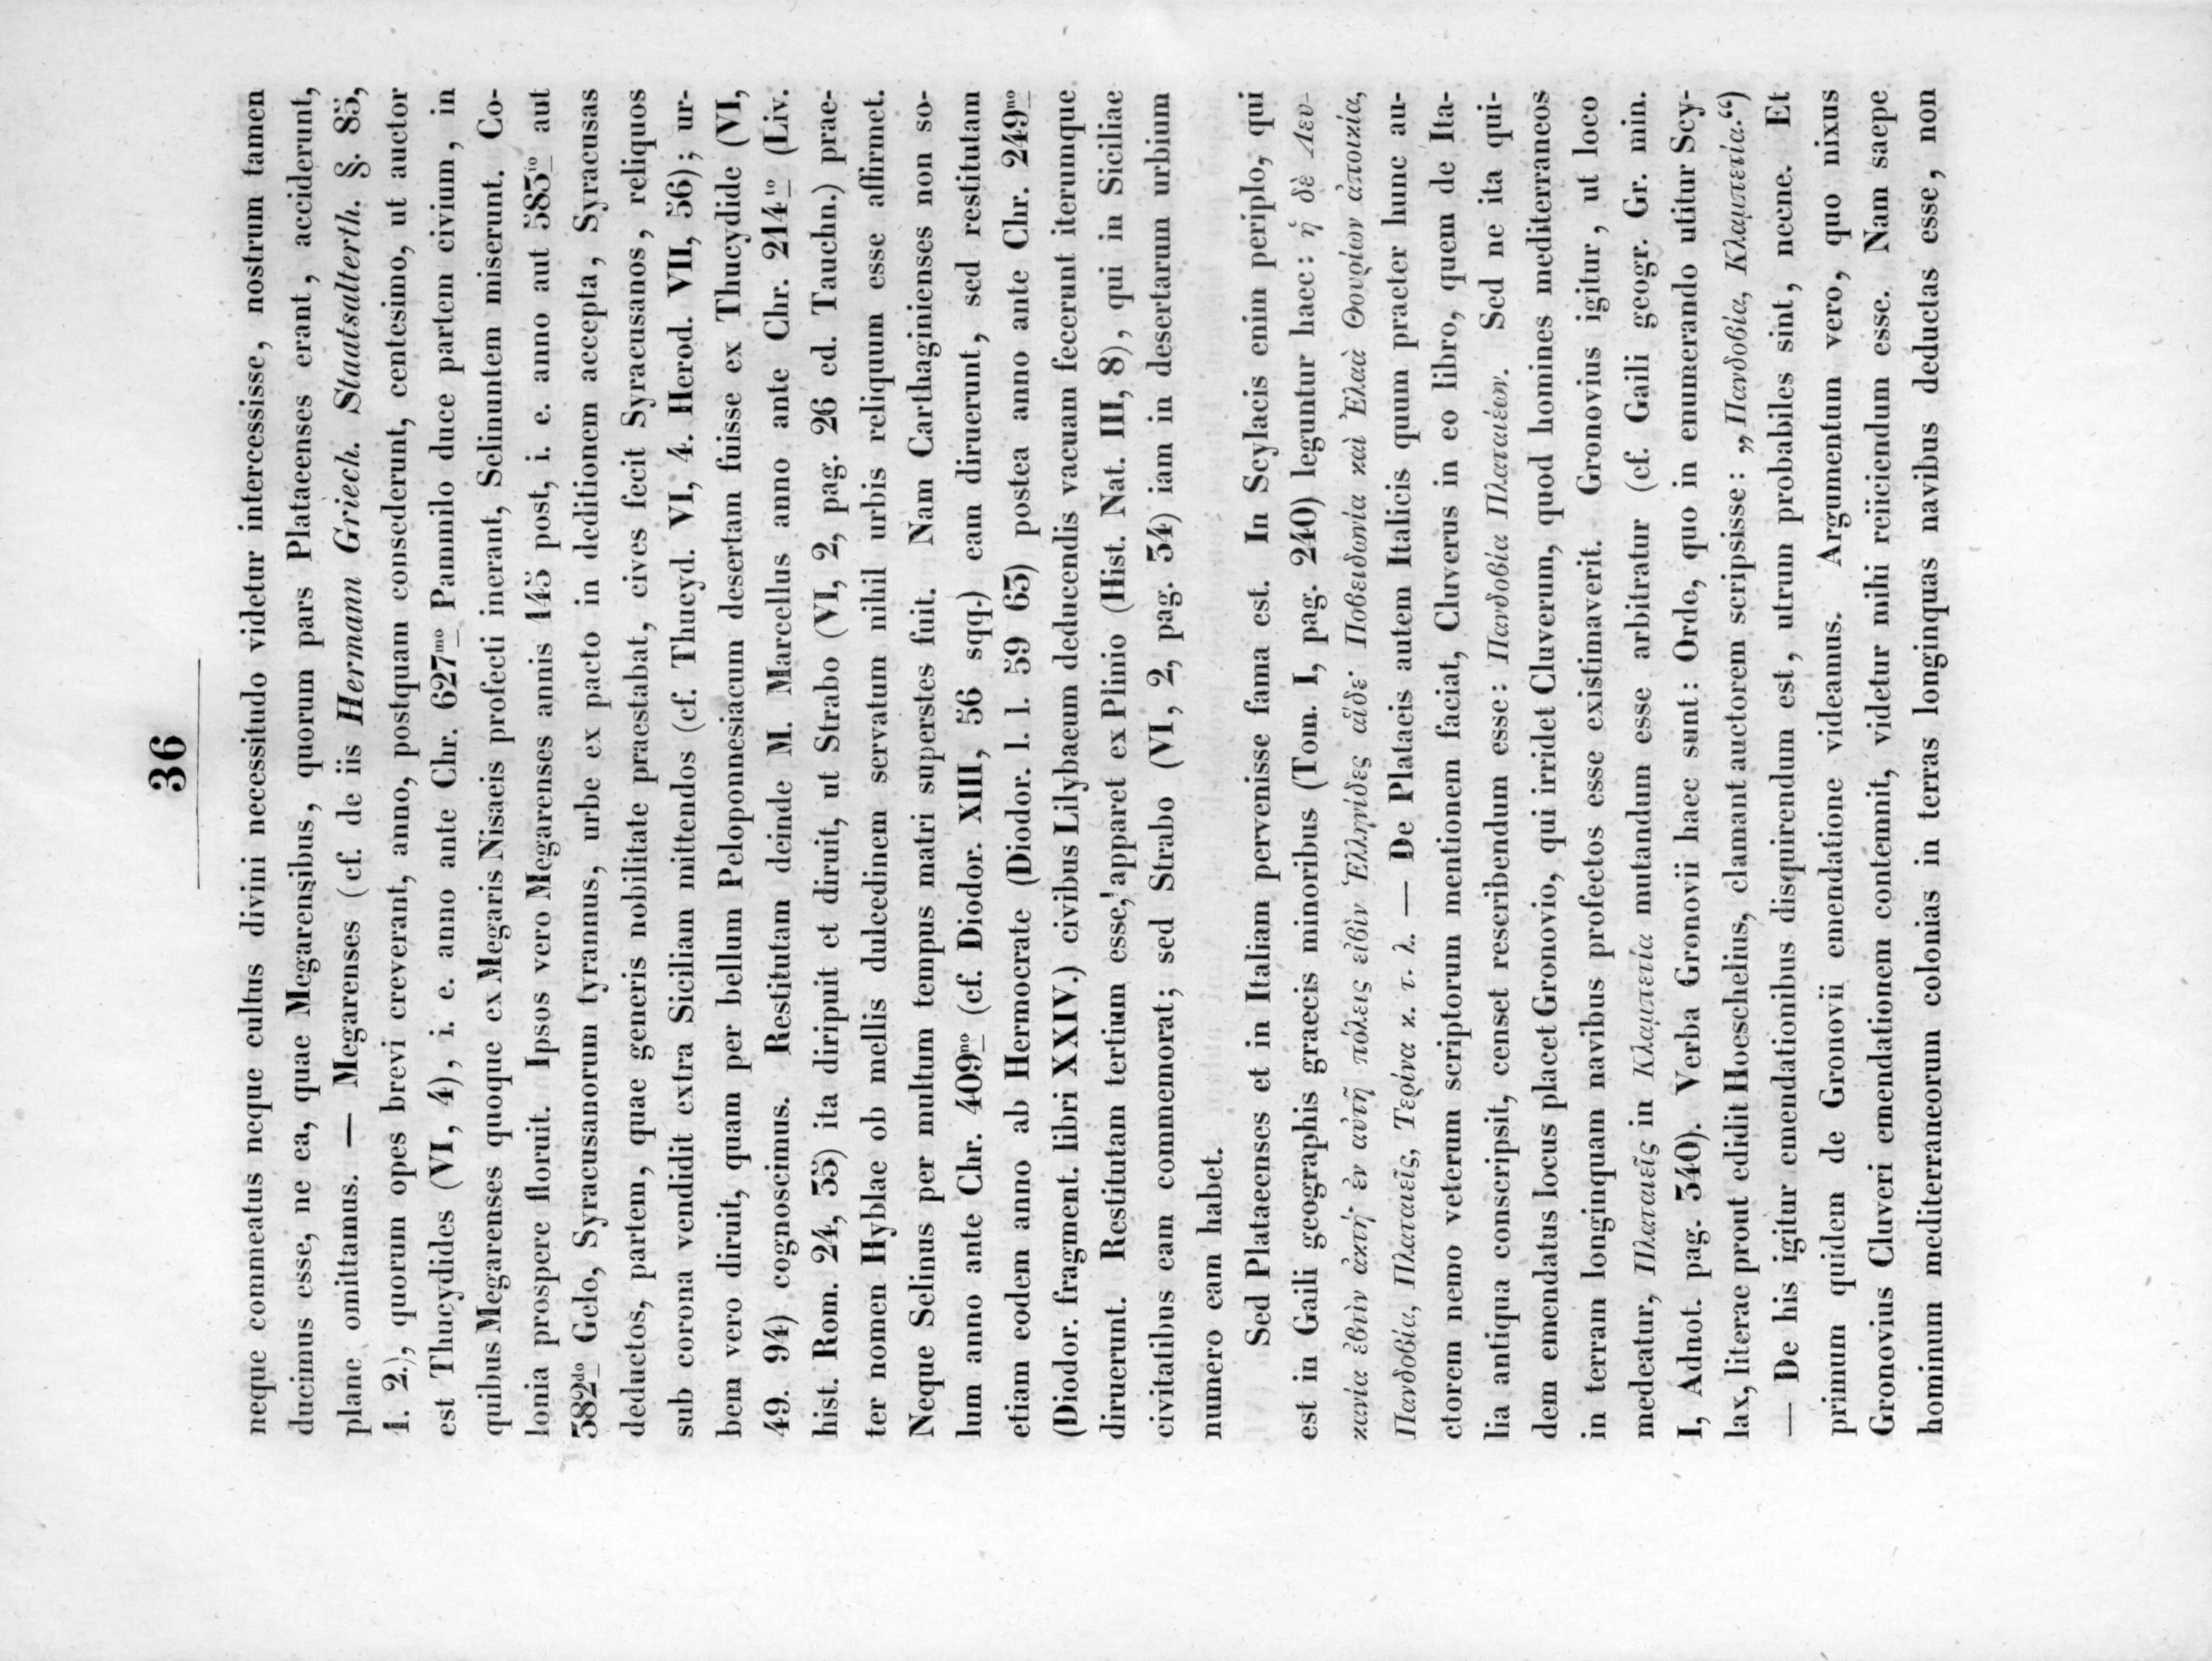 36
neque commeatus neque cultus divini necessitudo videtur intercessisse, nostrum tamen
ducimus esse, ne ea, quae Megarensibus, quorum pars Plataeenses erant, acciderunt,
plane omittamus. — Megarenses (cf. de iis Hermann Griech. Staatsalterth. §. 85,
1. 2.), quorum opes brevi creverant, anno, postquam consederunt, centesimo, ut auctor
est Thucydides (VI, 4), i. e. anno ante Chr. 627mo Pammilo duce partem civium, in
quibus Megarenses quoque ex Megaris Nisaeis profecti inerant, Selinuntem miserunt. Co-
lonia prospere floruit. Ipsos vero Megarenses annis 145 post, i. e. anno aut 583io aut
582do Gelo, Syracusanorum tyrannus, urbe ex pacto in deditionem accepta, Syracusas
deductos, partem, quae generis nobilitate praestabat, cives fecit Syracusanos, reliquos
sub corona vendidit extra Siciliam mittendos (cf. Thucyd. VI, 4. Herod. VII, 56); ur-
bem vero diruit, quam per bellum Peloponnesiacum desertam fuisse ex Thucydide (VI,
49. 94) cognoscimus. Restitutam deinde M. Marcellus anno ante Chr. 214to (Liv.
hist. Rom. 24, 35) ita diripuit et diruit, ut Strabo (VI, 2, pag. 26 ed. Tauchn.) prae-
ter nomen Hyblae ob mellis dulcedinem servatum nihil urbis reliquum esse affirmet.
Neque Selinus per multum tempus matri superstes fuit. Nam Carthaginienses non so-
lum anno ante Chr. 409no (cf. Diodor. XIII, 56 sqq.) eam diruerunt, sed restitutam
etiam eodem anno ab Hermocrate (Diodor. l. l. 59 63) postea anno ante Chr. 249no
(Diodor. fragment. libri XXIV.) civibus Lilybaeum deducendis vacuam fecerunt iterumque
diruerunt. Restitutam tertium esse, apparet ex Plinio (Hist. Nat. III, 8), qui in Siciliae
civitatibus eam commemorat; sed Strabo (VI, 2, pag. 34) iam in desertarum urbium
numero eam habet.
Sed Plataeenses et in Italiam pervenisse fama est. In Scylacis enim periplo, qui
est in Gaili geographis graecis minoribus (Tom. I, pag. 240) leguntur haec: ἡ δὲ Λευ-
κανία ἐϐὶν ἀκτή· ἐν αὐτῇ πόλεις εἰϐὶν Ἑλληνίδες αἵδε· Ποϐειδωνία καὶ Ἐλαὰ Θουρίων ἀποικία,
Πανδοϐία, Πλαταιεῖς, Τερίνα κ. τ. λ. — De Plataeis autem Italicis quum praeter hunc au-
ctorem nemo veterum scriptorum mentionem faciat, Cluverus in eo libro, quem de Ita-
lia antiqua conscripsit, censet rescribendum esse: Πανδοϐία Πλαταιέων. Sed ne ita qui-
dem emendatus locus placet Gronovio, qui irridet Cluverum, quod homines mediterraneos
in terram longinquam navibus profectos esse existimaverit. Gronovius igitur, ut loco
medeatur, Πλαταιεῖς in Κλαμπετία mutandum esse arbitratur (cf. Gaili geogr. Gr. min.
I, Adnot. pag. 540). Verba Gronovii haec sunt: Ordo, quo in enumerando utitur Scy-
lax, literae prout edidit Hoeschelius, clamant auctorem scripsisse: „Πανδοϐία, Κλαμπετία.“)
— De his igitur emendationibus disquirendum est, utrum probabiles sint, necne. Et
primum quidem de Gronovii emendatione videamus. Argumentum vero, quo nixus
Gronovius Cluveri emendationem contemnit, videtur mihi reiiciendum esse. Nam saepe
hominum mediterraneorum colonias in terras longinquas navibus deductas esse, non